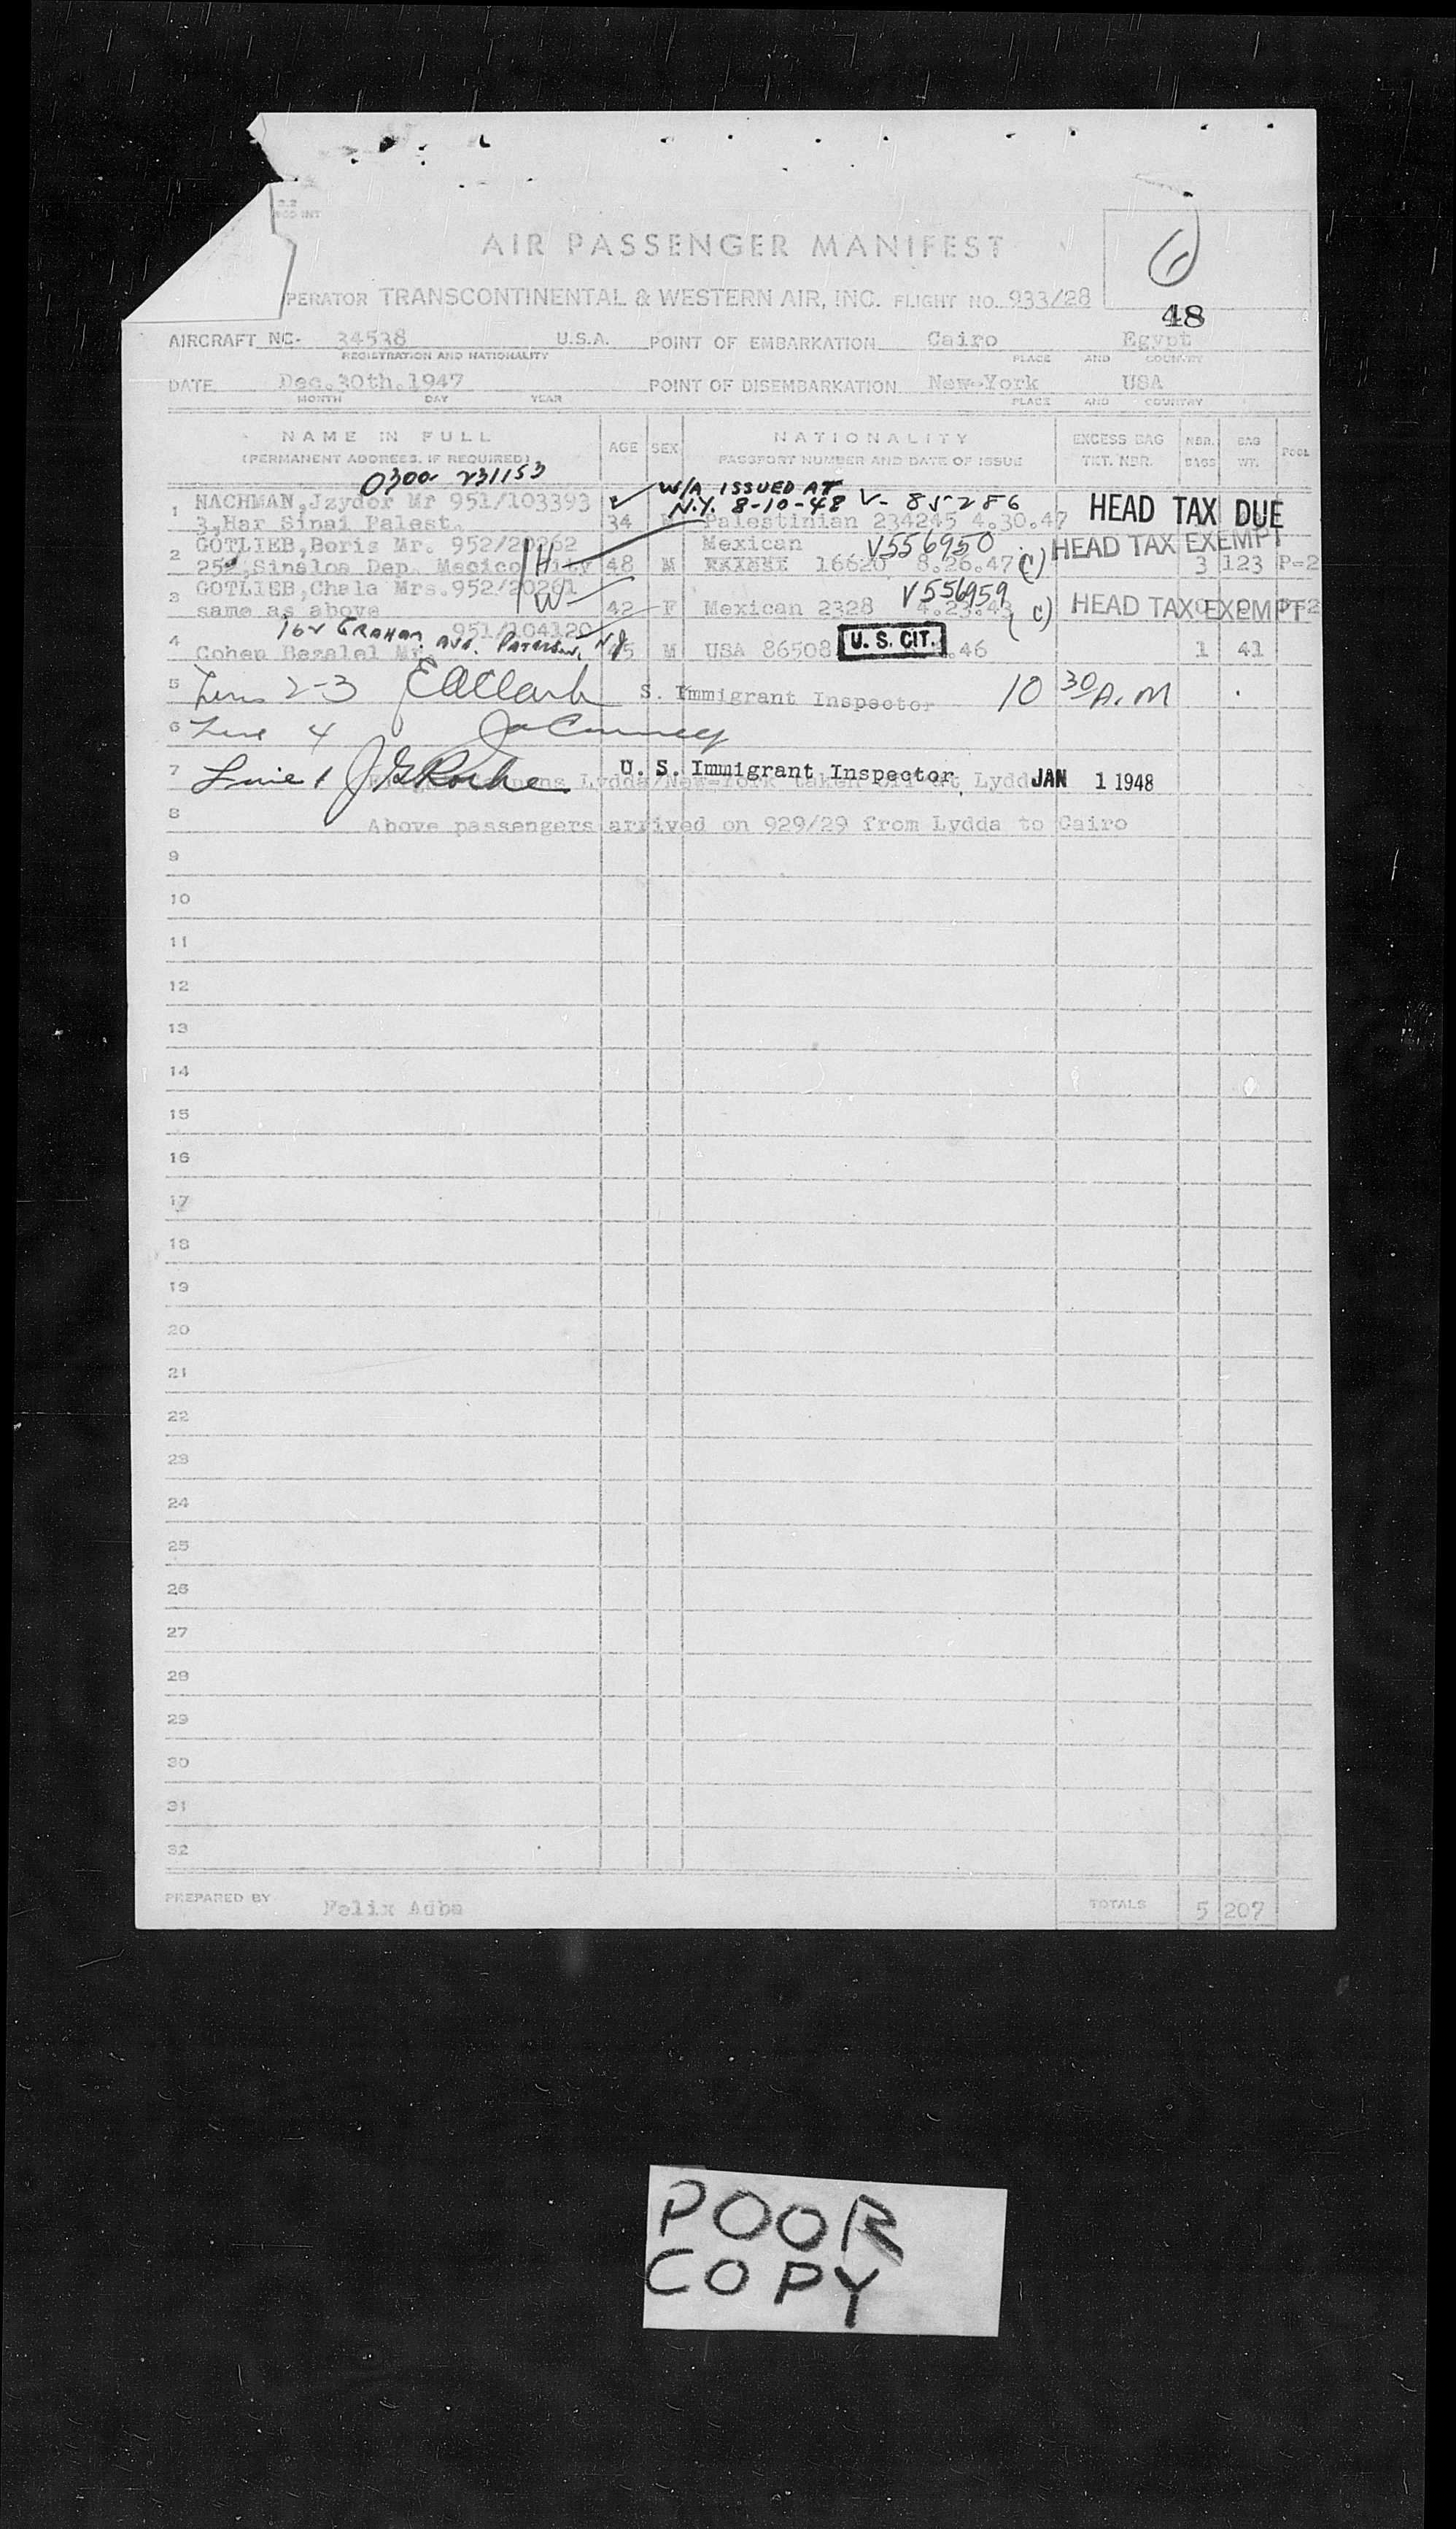 AIR PASSENGER MANIFEST
6
PERATOR TRANSCONTINENTAL & WESTERN AIR, INC. FLIGHT NO. 933/28
48
AIRCRAFT NC- 34538 U.S.A. POINT OF EMBARKATION Cairo Egypt
REGISTRATION AND NATIONALITY PLACE AND COUNTRY
DATE Dec.30th.1947 POINT OF DISEMBARKATION New-York USA
MONTH DAY YEAR PLACE AND COUNTRY
NAME IN FULL AGE SEX NATIONALITY EXCESS BAG NBR. BAG POOL
(PERMANENT ADDRESS, IF REQUIRED) PASSPORT NUMBER AND DATE OF ISSUE TKT. NBR. BAGS WT.
0300 231153
W/A ISSUED AT
N.Y. 8-10-48 V- 85286
1 NACHMAN,Jzydor Mr 951/103393 HEAD TAX DUE
3,Har Sinai Palest. 34 Palestinian 234245 4.30.47
2 GOTLIEB,Boris Mr. 952/20262 Mexican V556950 HEAD TAX EXEMPT
Sinaloa Dep. Mexico City H 48 M 16620 8.26.47 (C) 3 123 P=2
3 GOTLIEB,Chala Mrs.952/20261 V556959
same as above W 42 F Mexican 2328 4.23.43 (C) HEAD TAX EXEMPT
951/104120
162 GRAHAM AVE. PATERSON, NJ
4 Cohen Bezalel Mr. M USA 86508 U. S. CIT. .46 1 41
5 Lines 2-3 EAClark S. Immigrant Inspector 10 30 A.M
6 Line 4
7 Line 1 U. S. Immigrant Inspector JAN 1 1948
Lydda/New-York taken off at Lydda
8 Above passengers arrived on 929/29 from Lydda to Cairo
9
10
11
12
13
14
15
16
17
18
19
20
21
22
23
24
25
26
27
28
29
30
31
32
PREPARED BY Felix Adba TOTALS 5 207
POOR
COPY